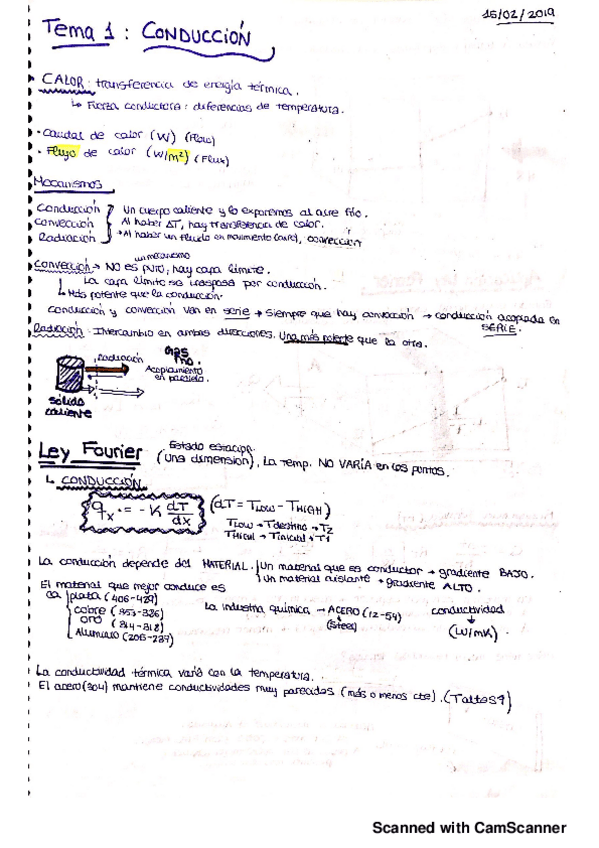 15/02/2019
Tema 1: CONDUCCIÓN
CALOR: transferencia de energía térmica.
↳ Fuerza conductora: diferencias de temperatura.
· Caudal de calor (W) (Flow)
· Flujo de calor (W/m²) (Flux)
Mecanismos
Conducción } Un cuerpo caliente y lo exponemos al aire frío.
Convección } Al haber ΔT, hay transferencia de calor.
Radiación } Al haber un fluido en movimiento (aire), convección
un mecanismo
Convección → NO es puro, hay capa límite.
↳ La capa límite se traspasa por conducción.
↳ Más potente que la conducción.
Conducción y convección van en serie → siempre que hay convección → conducción acoplada en SERIE.
Radiación: Intercambio en ambas direcciones. Una más potente que la otra.
Radiación
Gas frío.
Acoplamiento en paralelo.
sólido caliente
Ley Fourier Estado estacion. (una dimensión), La temp. NO VARÍA en los puntos.
↳ CONDUCCIÓN
qx = - K dT/dx (dT = TLOW - THIGH)
TLOW → Tdestino → T2
THIGH → Tinicial → T1
La conducción depende del MATERIAL. { Un material que es conductor → gradiente BAJO.
{ Un material aislante → gradiente ALTO.
El material que mejor conduce es
la { plata (406-429)
cobre (353-386)
oro (314-318)
Aluminio (206-237)
La industria química → ACERO (12-54)
(steel)
conductividad
(W/mK).
La conductividad térmica varía con la temperatura.
El acero (304) mantiene conductividades muy parecidas (más o menos cte).
Scanned with CamScanner